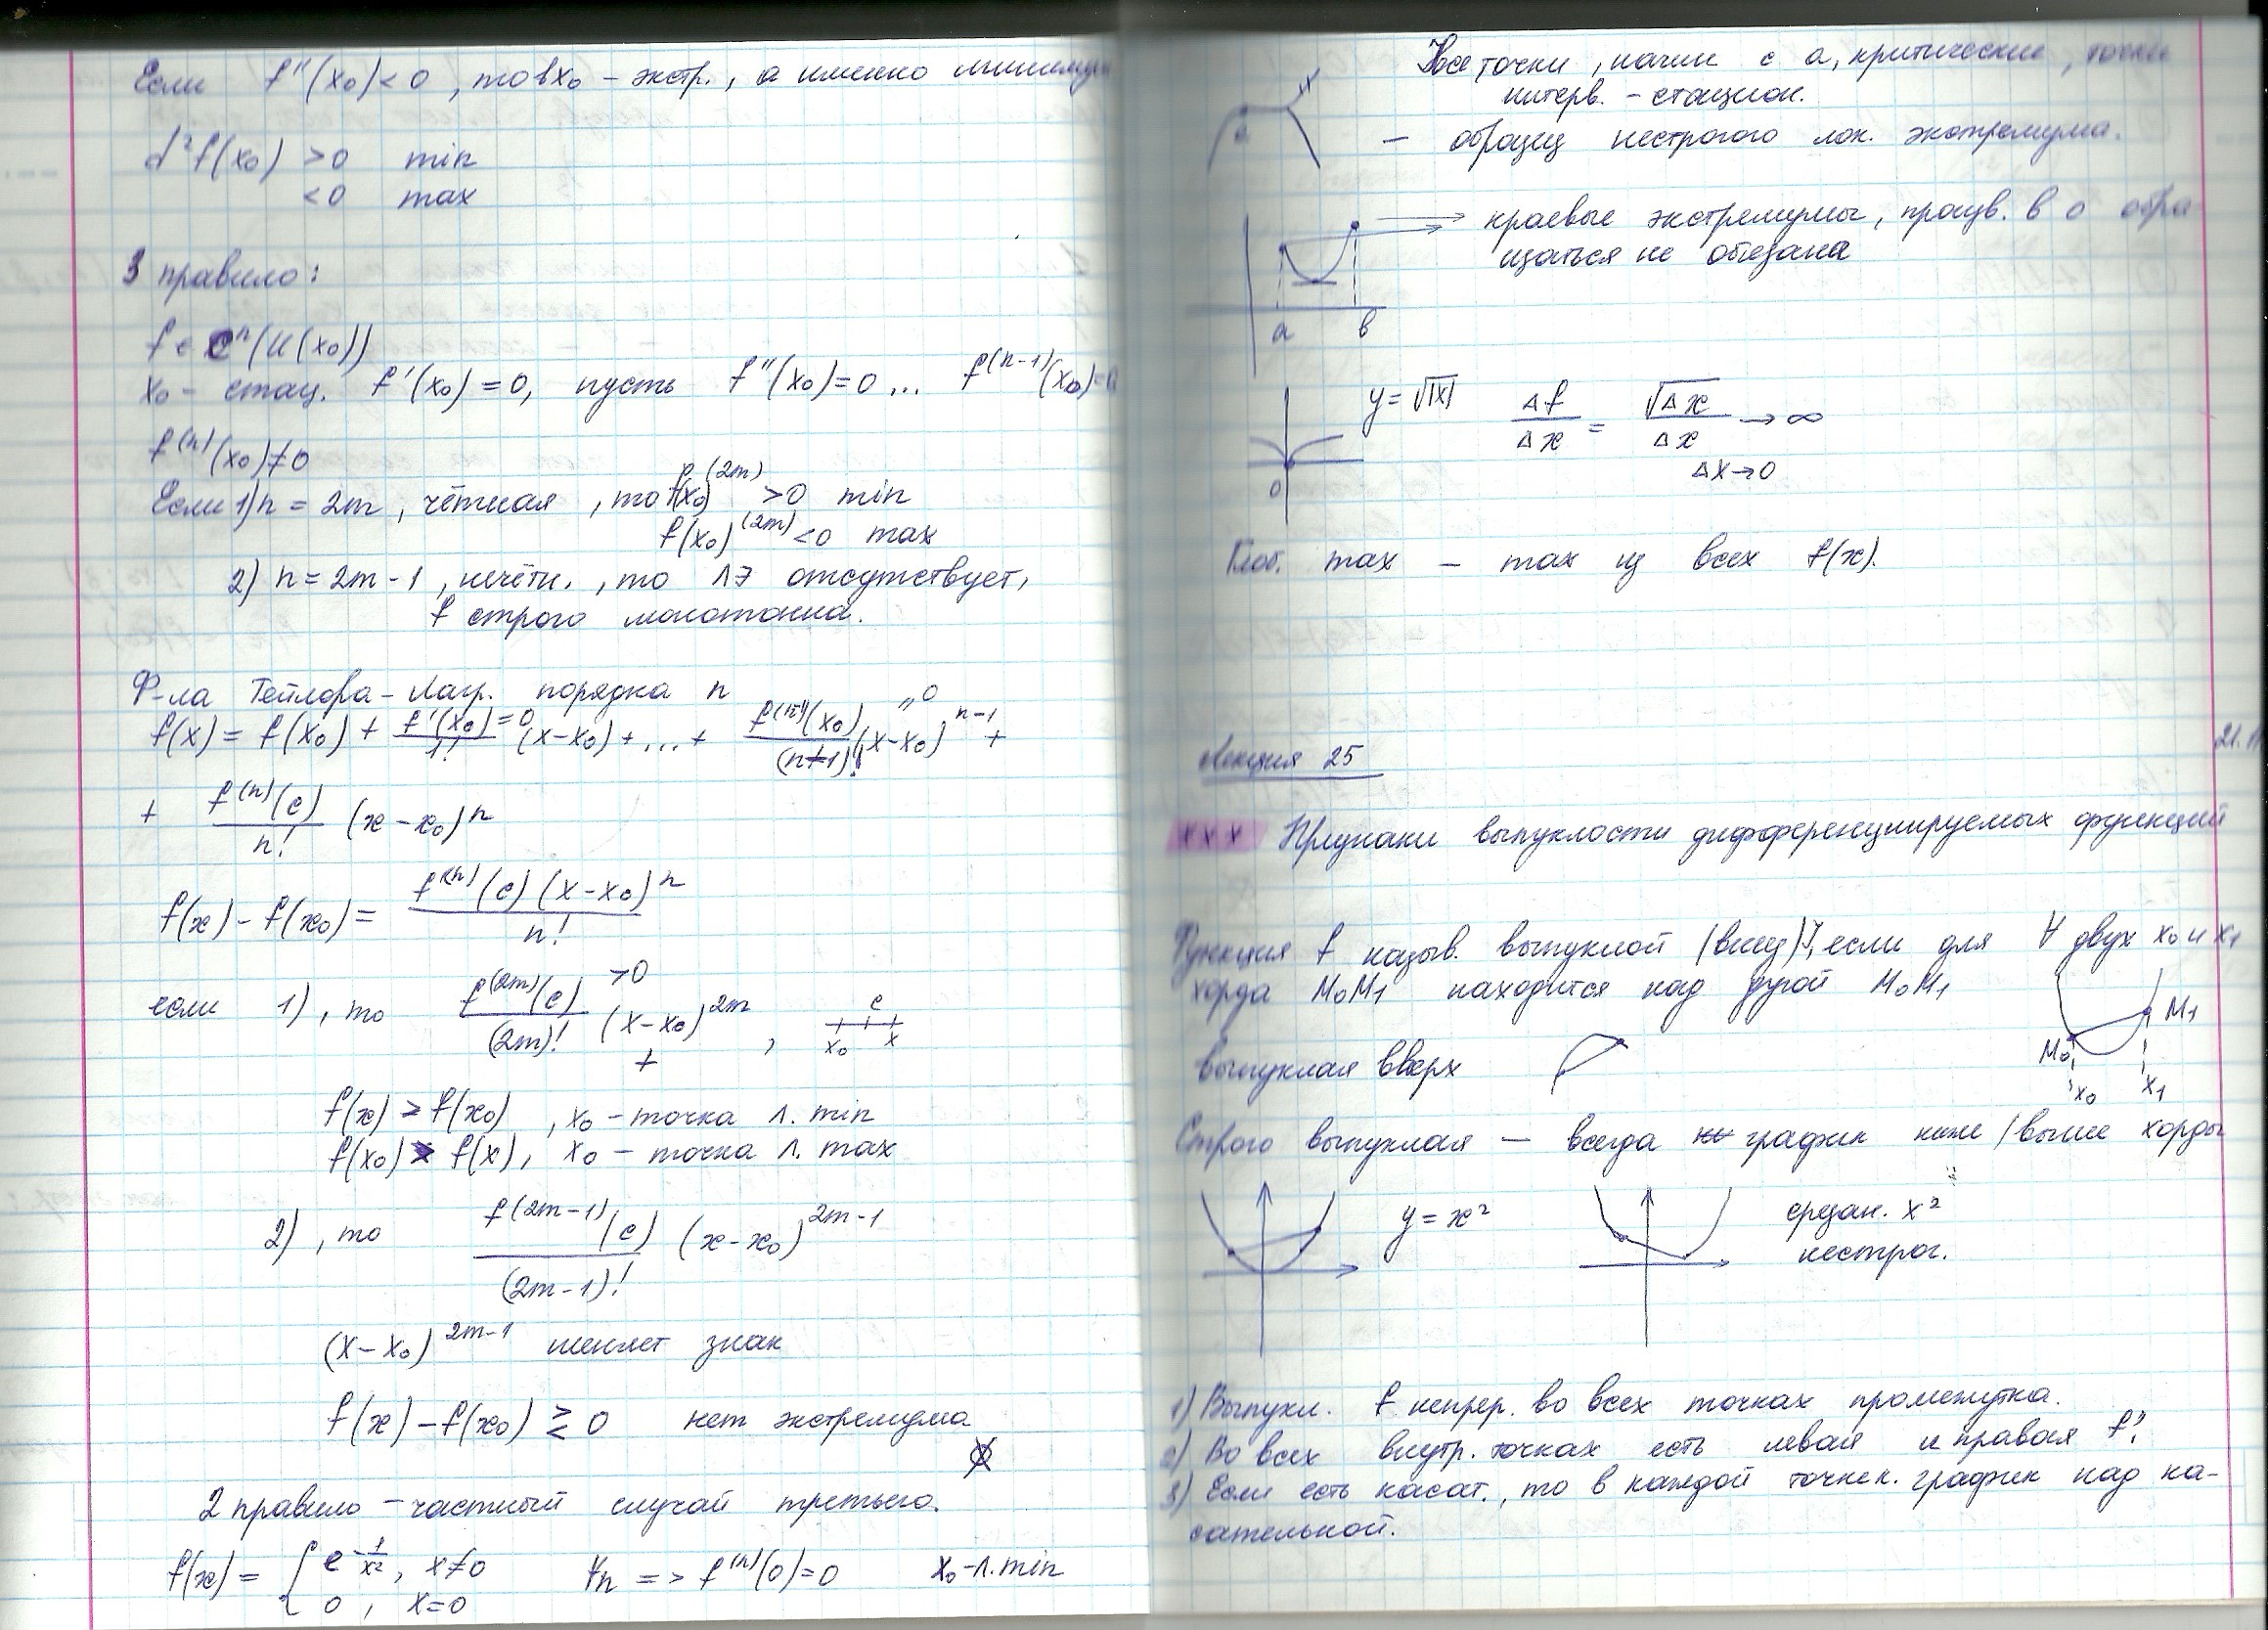 Если f''(x₀) < 0, то в x₀ – экстр., а именно минимум
d²f(x₀) > 0 min
< 0 max
3 правило:
f ∈ Cⁿ(U(x₀))
x₀ – стац. f'(x₀) = 0, пусть f''(x₀) = 0 ... f⁽ⁿ⁻¹⁾(x₀) = 0
f⁽ⁿ⁾(x₀) ≠ 0
Если 1) n = 2m, чётная, то f(x₀)^(2m) > 0 min
f(x₀)^(2m) < 0 max
2) n = 2m - 1, нечётн., то ЛЭ отсутствует,
f строго монотонна.
Ф-ла Тейлора – Лагр. порядка n
f(x) = f(x₀) + f'(x₀)/1! (x-x₀) + ... + f⁽ⁿ⁻¹⁾(x₀)/(n-1)! (x-x₀)ⁿ⁻¹ +
= 0 " 0
+ f⁽ⁿ⁾(c)/n! (x - x₀)ⁿ
f(x) - f(x₀) = f⁽ⁿ⁾(c)(x-x₀)ⁿ/n!
если 1), то f^(2m)(c)/(2m)! (x-x₀)^2m, > 0 + x₀ c x
f(x) > f(x₀), x₀ – точка л. min
f(x₀) > f(x), x₀ – точка л. max
2), то f^(2m-1)(c)/(2m-1)! (x-x₀)^2m-1
(x-x₀)^2m-1 меняет знак
f(x) - f(x₀) ≷ 0 нет экстремума
2 правило – частный случай третьего.
f(x) = { e^(-1/x²), x ≠ 0 ∀n => f⁽ⁿ⁾(0) = 0 x₀ – л. min
0, x = 0
Все точки, начин с a, критические, точки
интерв. – стацион.
a
– образец нестрогого лок. экстремума.
краевые экстремумы, произв. в 0 обра
щаться не обязана
a b
y = √|x| Δf/Δx = √Δx/Δx → ∞
Δx → 0
0
Глоб. max – max из всех f(x).
Лекция 25 21.11
xxx Признаки выпуклости дифференцируемых функций
Функция f назыв. выпуклой (вниз), если для ∀ двух x₀ и x₁
хорда M₀M₁ находится над дугой M₀M₁
M₀ M₁
x₀ x₁
выпуклая вверх
Строго выпуклая – всегда график ниже/выше хорды
y = x² срезан. x²
нестрог.
1) Выпукл. f непрер. во всех точках промежутка.
2) Во всех внутр. точках есть левая и правая f'.
3) Если есть касат., то в каждой точке к. график над ка-
сательной.